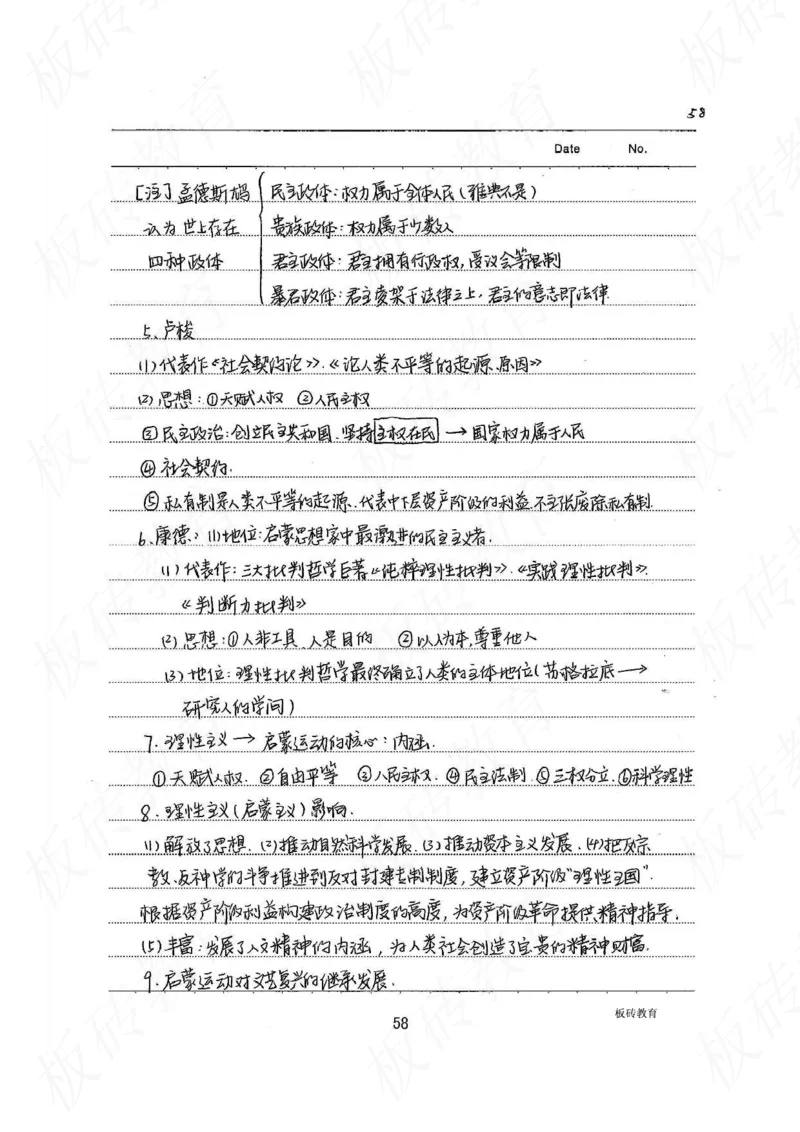 58
Date No.
[注]孟德斯鸠 民主政体:权力属于全体人民(雅典不是)
认为世上存在 贵族政体:权力属于少数人
四种政体 君主政体:君主拥有行政权,受议会等限制
暴君政体:君主凌架于法律之上,君主的意志即法律.
5、卢梭
(1)代表作《社会契约论》.《论人类不平等的起源、原因》
(2)思想:①天赋人权 ②人民主权
③民主政治:创立民主共和国、坚持主权在民→国家权力属于人民
④社会契约.
⑤私有制是人类不平等的起源、代表中下层资产阶级的利益.不主张废除私有制.
6、康德: (1)地位:启蒙思想家中最激进的民主主义者.
(1)代表作:三大批判哲学巨著《纯粹理性批判》.《实践理性批判》.
《判断力批判》
(2)思想:①人非工具、人是目的 ②以人为本,尊重他人
(3)地位:理性批判哲学最终确立了人类的主体地位(苏格拉底→
研究人的学问)
7.理性主义→启蒙运动的核心:内涵.
①天赋人权.②自由平等 ③人民主权.④民主法制.⑤三权分立.⑥科学理性
8.理性主义(启蒙主义)影响.
(1)解放了思想.(2)推动自然科学发展.(3)推动资本主义发展.(4)把反宗
教、反神学的斗争推进到反对封建专制制度,建立资产阶级"理性王国".
根据资产阶级利益构建政治制度的高度,为资产阶级革命提供精神指导.
(5)丰富:发展了人文精神的内涵,为人类社会创造了宝贵的精神财富.
9.启蒙运动对文艺复兴的继承发展.
板砖教育
58